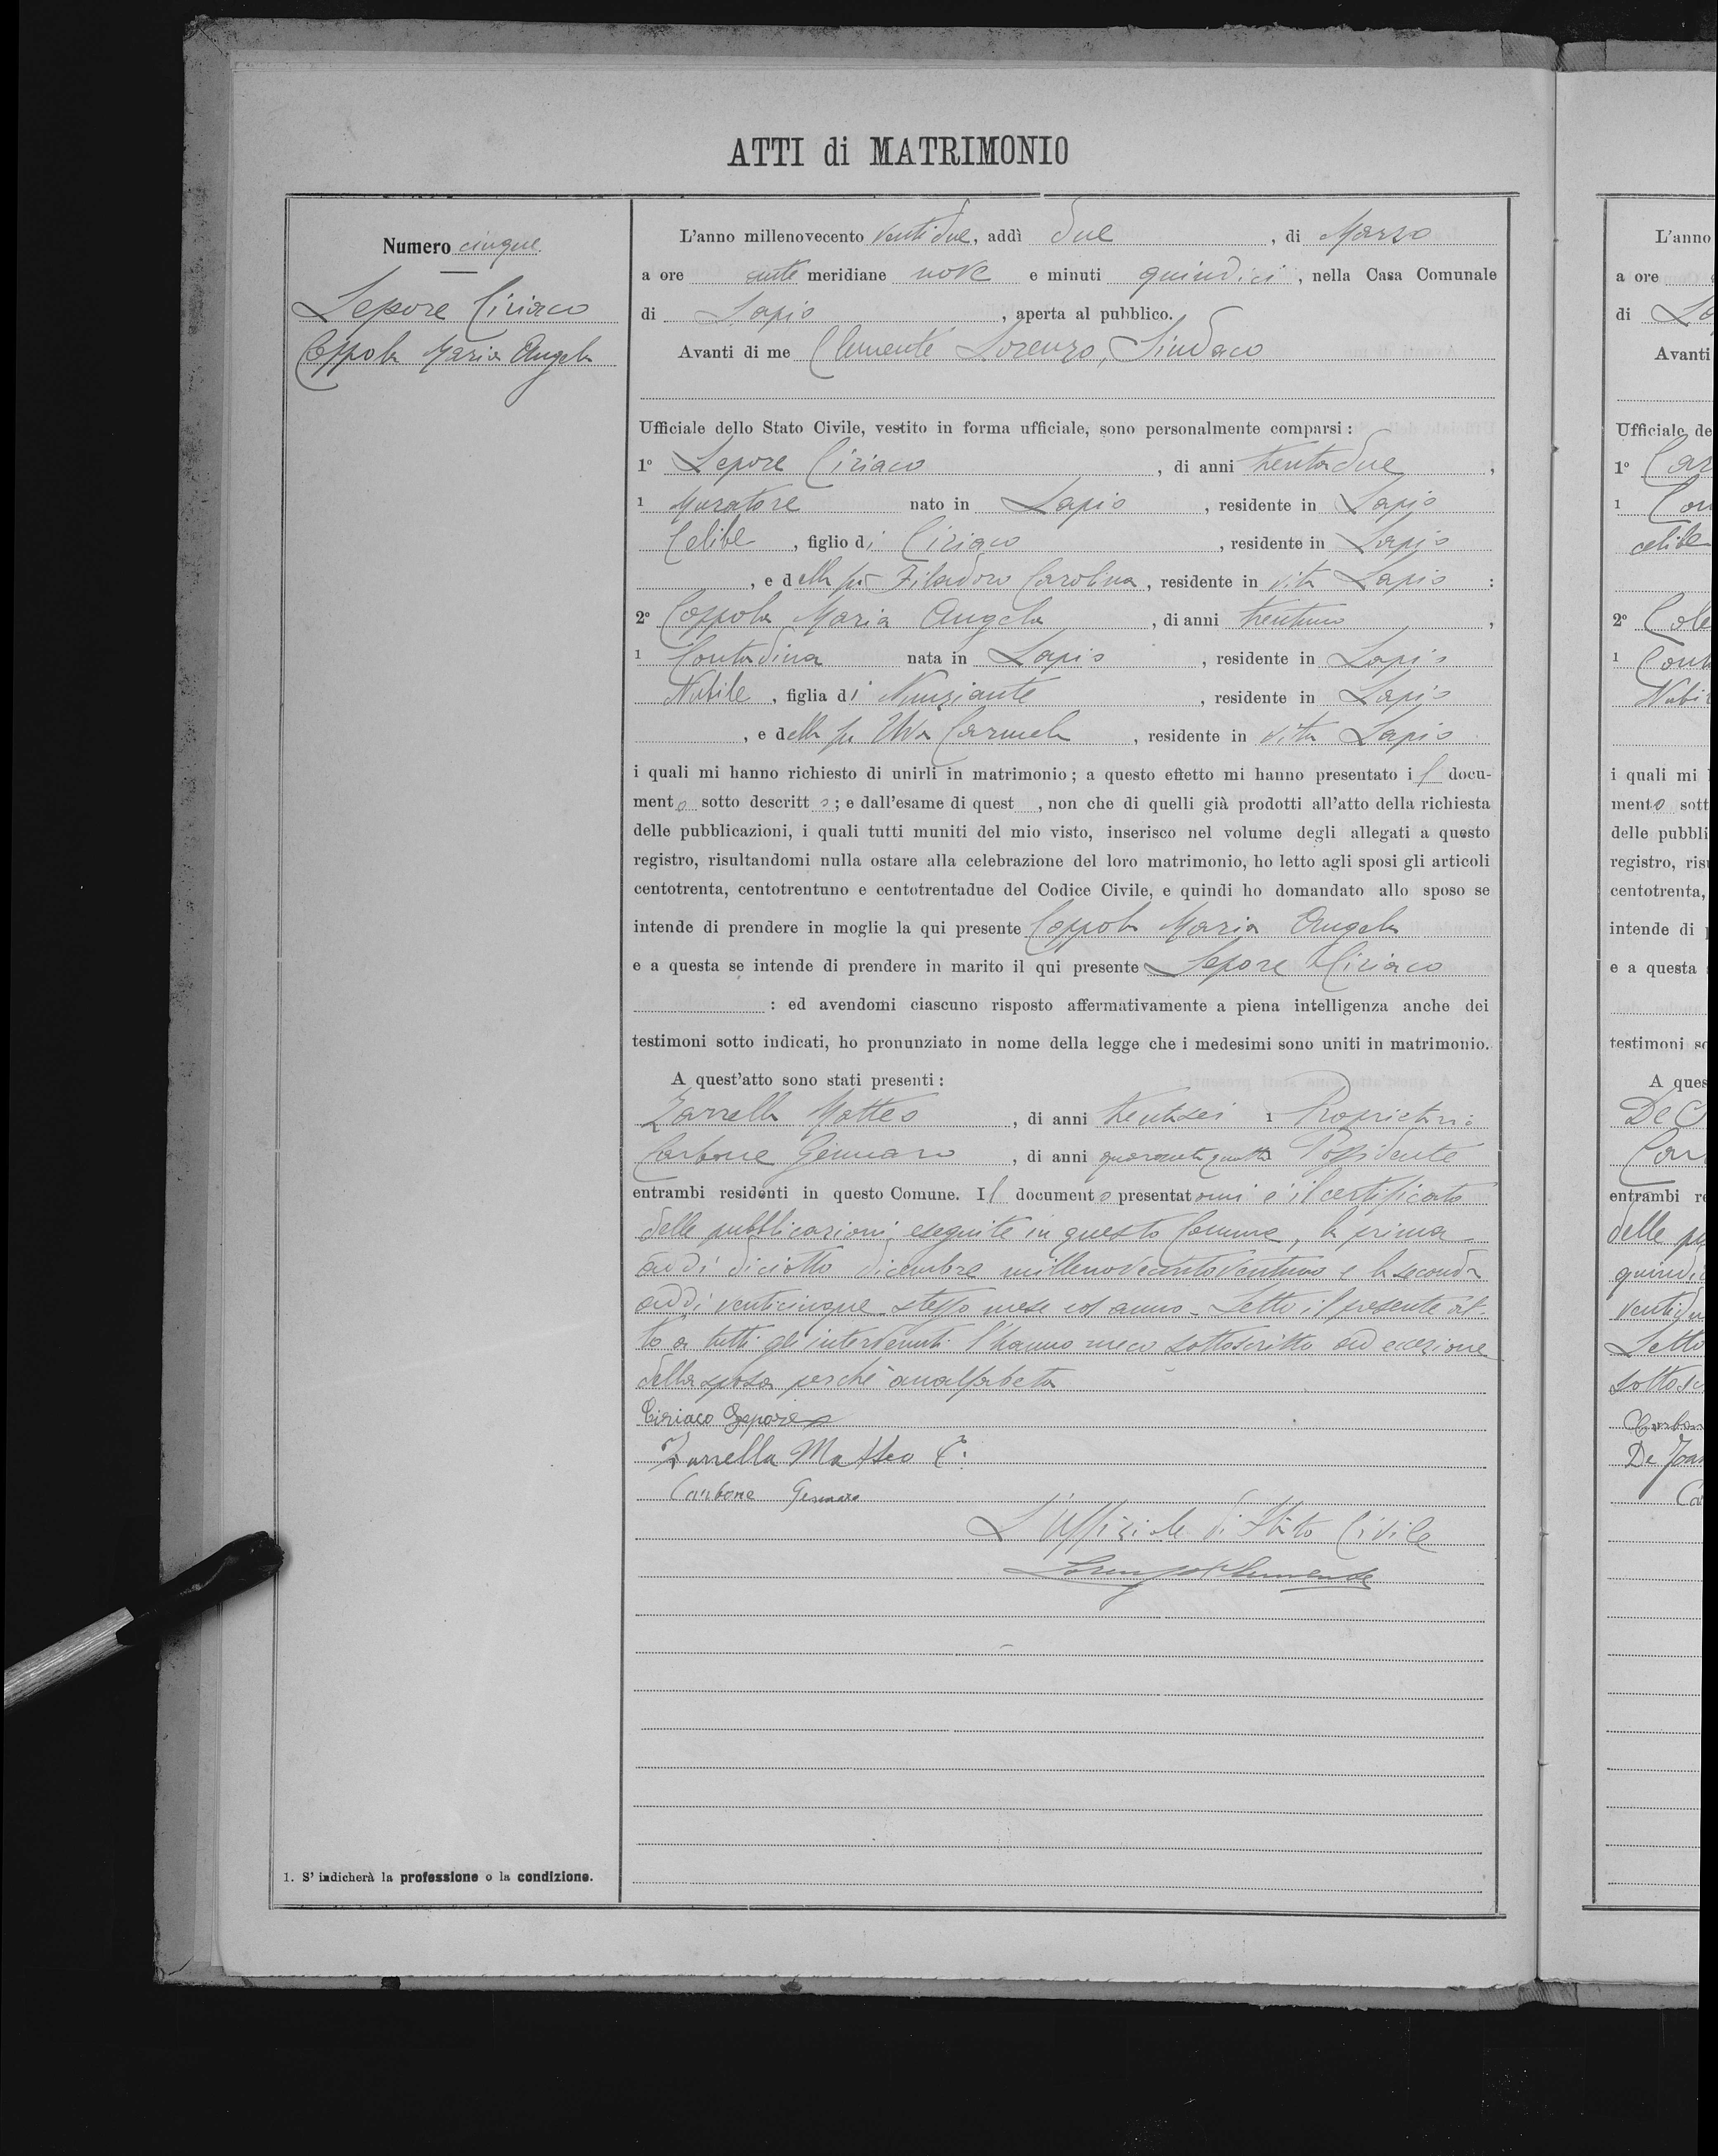 ATTI di MATRIMONIO
Numero cinque
Lepore Ciriaco
Coppola Maria Angela
L'anno millenovecento ventidue, addì due, di Marzo
a ore ante meridiane nove e minuti quindici, nella Casa Comunale
di Lapio, aperta al pubblico.
Avanti di me Clemente Lorenzo, Sindaco
Ufficiale dello Stato Civile, vestito in forma ufficiale, sono personalmente comparsi:
1° Lepore Ciriaco, di anni trentadue,
1 Muratore nato in Lapio, residente in Lapio
Celibe, figlio di Ciriaco, residente in Lapio
, e della fu Filadoro Carolina, residente in vita Lapio:
2° Coppola Maria Angela, di anni trentuno,
1 Contadina nata in Lapio, residente in Lapio
Nubile, figlia di Nunziante, residente in Lapio
, e della fu Uva Carmela, residente in vita Lapio
i quali mi hanno richiesto di unirli in matrimonio; a questo effetto mi hanno presentato il docu-
mento sotto descritto; e dall'esame di quest , non che di quelli già prodotti all'atto della richiesta
delle pubblicazioni, i quali tutti muniti del mio visto, inserisco nel volume degli allegati a questo
registro, risultandomi nulla ostare alla celebrazione del loro matrimonio, ho letto agli sposi gli articoli
centotrenta, centotrentuno e centotrentadue del Codice Civile, e quindi ho domandato allo sposo se
intende di prendere in moglie la qui presente Coppola Maria Angela
e a questa se intende di prendere in marito il qui presente Lepore Ciriaco
: ed avendomi ciascuno risposto affermativamente a piena intelligenza anche dei
testimoni sotto indicati, ho pronunziato in nome della legge che i medesimi sono uniti in matrimonio.
A quest'atto sono stati presenti:
Zarrella Matteo, di anni trentasei 1 Proprietario
Carbone Gennaro, di anni quarantaquattro Possidente
entrambi residenti in questo Comune. Il documento presentatomi è il certificato
delle pubblicazioni eseguite in questo Comune, la prima
addì diciotto dicembre millenovecentoventuno e la seconda
addì venticinque stesso mese ed anno. Letto il presente at-
to a tutti gli intervenuti l'hanno meco sottoscritto ad eccezione
della sposa perchè analfabeta
Ciriaco Lepore
Zarrella Matteo
Carbone Gennaro
L'Uffiziale di Stato Civile
Lorenzo Clemente
1. S'indicherà la professione o la condizione.
L'anno
a ore
di
Avanti
Ufficiale de
1°
1
celibe
2°
1
i quali mi
mento sott
delle pubbli
registro, ris
centotrenta,
intende di
e a questa
testimoni so
A ques
entrambi re
delle pu